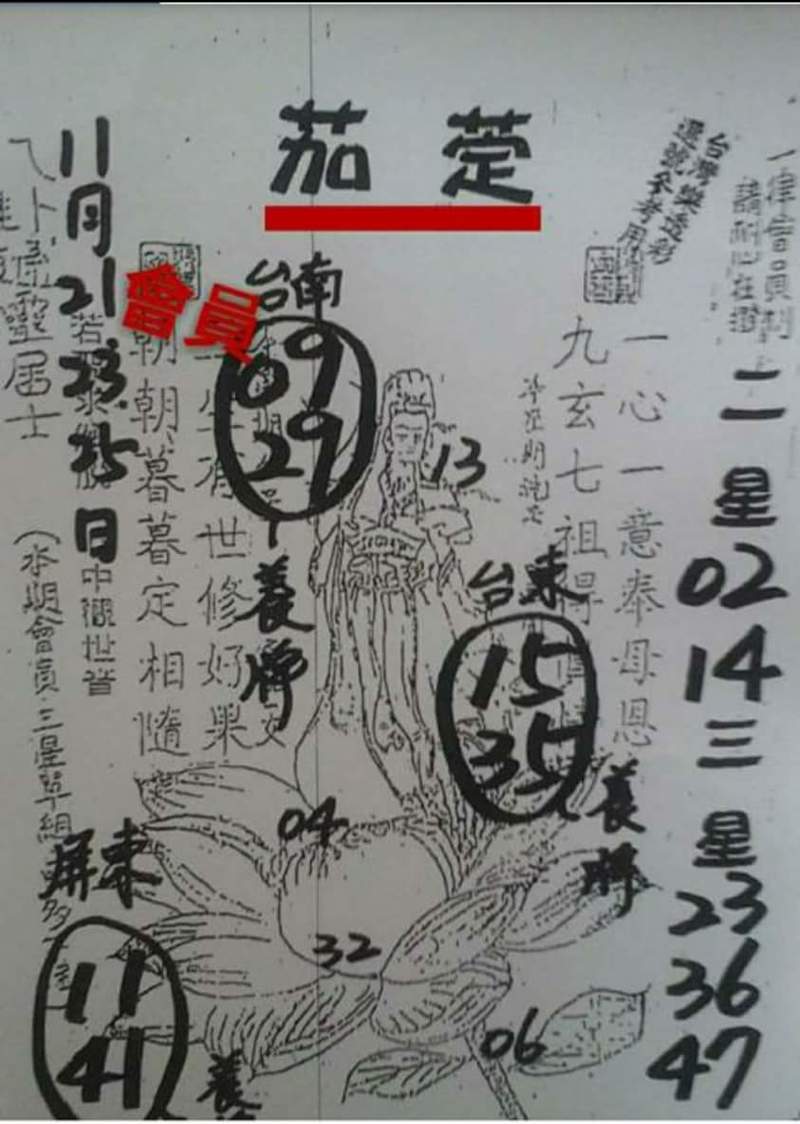 茄萣
台灣樂透彩
選號參考用
一律會員制
請耐心在撥
二星
02
14
三星
23
36
47
一心一意奉母恩
九玄七祖得
13
台東
15
35
養牌
台南
09
29
養牌
會員
世修好果
朝朝暮暮定相隨
中觀世音
11月21 23 25日
靈居士
(本期會員三星單組
屏東
11
41
養
04
32
06